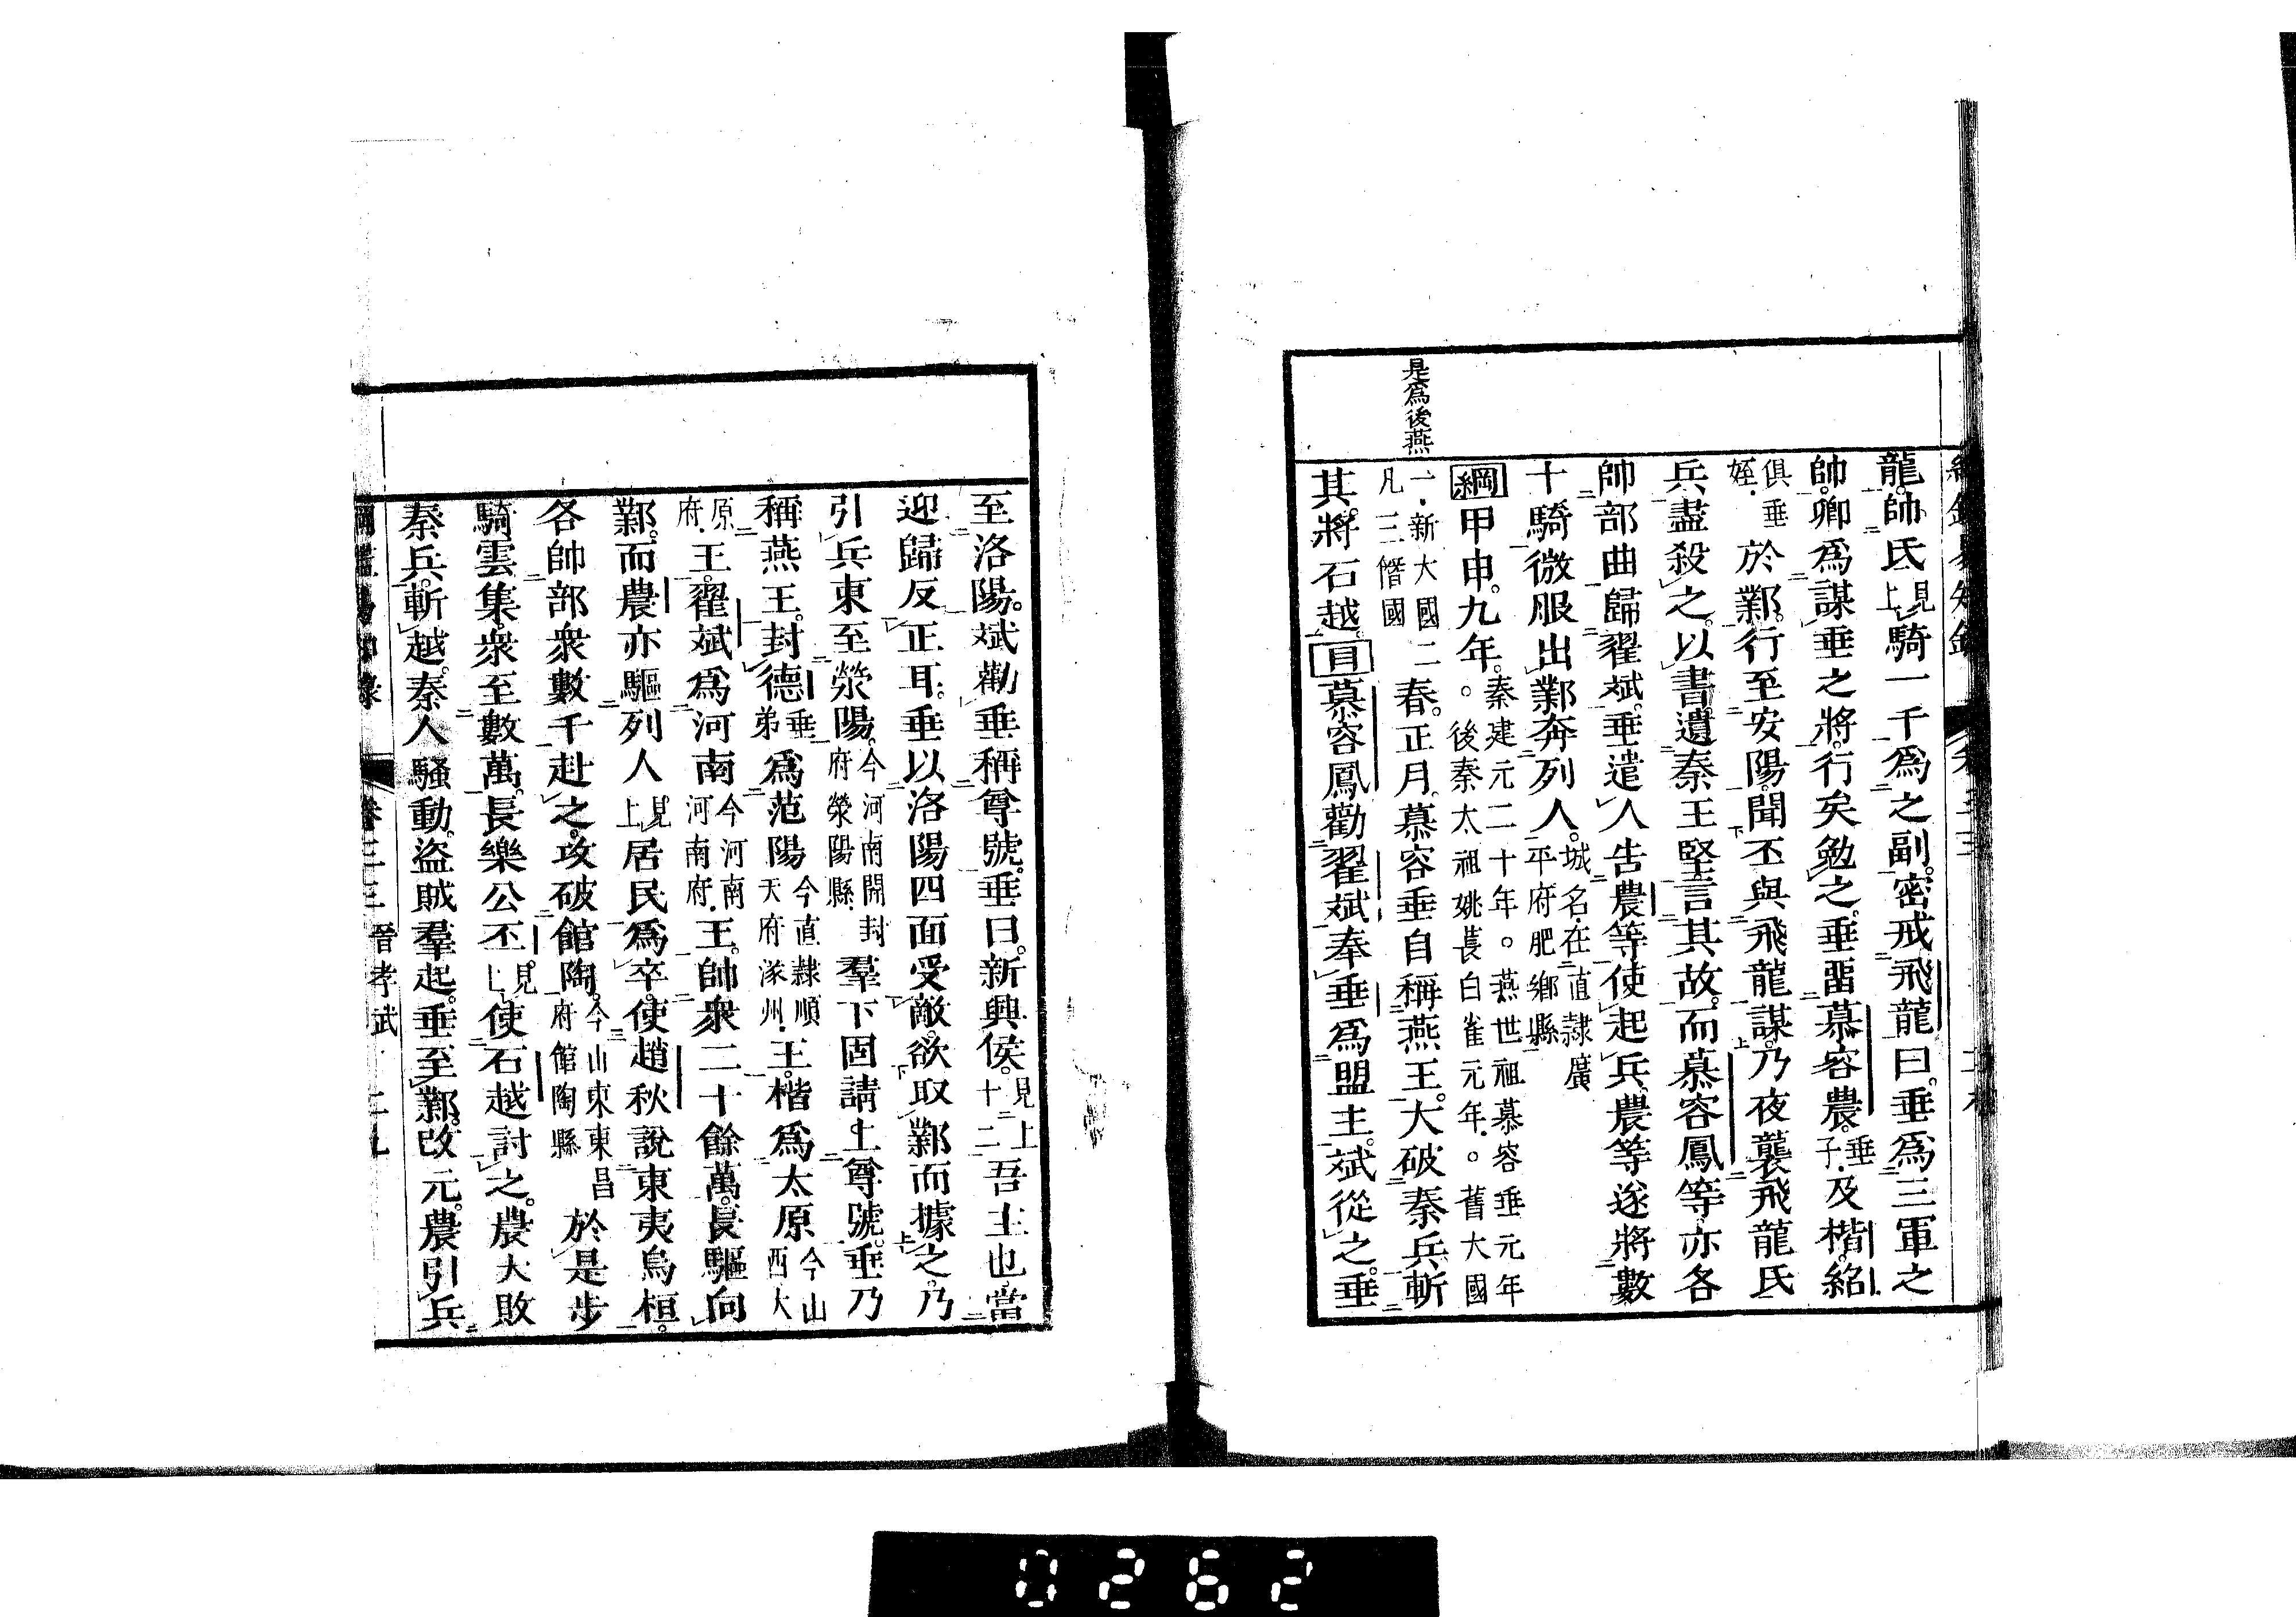 是爲後燕
龍。帥氐見上騎一千爲之副。密戒飛龍曰。垂爲三軍之
帥。卿爲謀垂之將。行矣勉之。垂畱慕容農。垂子。及楷。紹
俱垂姪。於鄴。行至安陽。聞丕與飛龍謀。乃夜襲飛龍氐
兵盡殺之。以書遺秦王堅言其故。而慕容鳳等亦各
帥部曲歸翟斌。垂遣人告農等使起兵。農等遂將數
十騎微服出鄴奔列人。城名。在直隷廣平府肥鄉縣
綱甲申。九年。秦建元二十年。○燕世祖慕容垂元年。○後秦太祖姚萇白雀元年。○舊大國
一。新大國二凡三僭國春。正月。慕容垂自稱燕王。大破秦兵斬
其將石越。目慕容鳳勸翟斌奉垂爲盟主。斌從之。垂
至洛陽。斌勸垂稱尊號。垂曰。新興侯。見上十二吾主也。當
迎歸反正耳。垂以洛陽四面受敵。欲取鄴而據之。乃
引兵東至滎陽。今河南開封府滎陽縣羣下固請上尊號。垂乃
稱燕王。封德垂弟爲范陽今直隷順天府涿州。王。楷爲太原今山西大
原府。王。翟斌爲河南今河南河南府。王。帥衆二十餘萬。長驅向
鄴。而農亦驅列人見上居民爲卒。使趙秋說東夷烏桓。
各帥部衆數千赴之。攻破館陶。今山東東昌府館陶縣於是步
騎雲集。衆至數萬。長樂公丕。見上使石越討之。農大敗
秦兵。斬越。秦人騷動。盜賊羣起。垂至鄴。改元。農引兵
卷三三 晉孝武 二九
0262